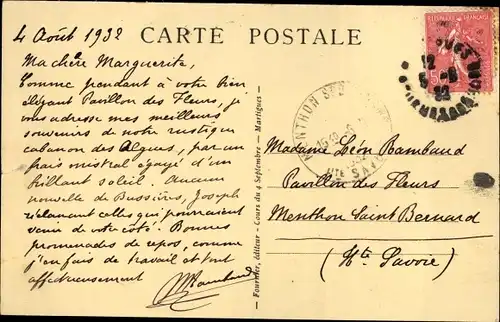 4 Août 1932
CARTE POSTALE
Ma chère Marguerite,
Comme pendant à votre bien
élégant Pavillon des Fleurs, je
vous adresse mes meilleurs
souvenirs de notre rustique
cabanon des Algues, par un
frais mistral égayé d'un
brillant soleil. Aucune
nouvelle de Bussières, Joseph
réclamant celles qui pourraient
venir de votre côté. Bonnes
promenades de repos, comme
j'en fais de travail et tout
affectueusement
Fournier, éditeur - Cours du 4 Septembre - Martigues
Madame Léon Rambaud
Pavillon des Fleurs
Menthon Saint Bernard
(Hte Savoie)